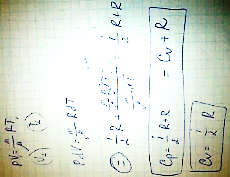 PV = m/μ RT
(V₂) (T₂)
PΔV = m/μ RΔT
= i/2 R + = i/2 R + R
Cp = i/2 R + R = Cv + R
Cv = i/2 R